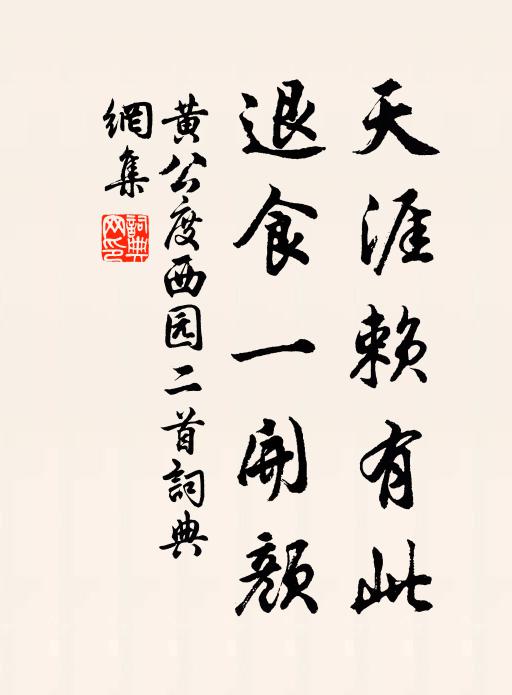 天涯赖有此
退食一開颜
黄公度西园二首詞典
網集
詞典网印